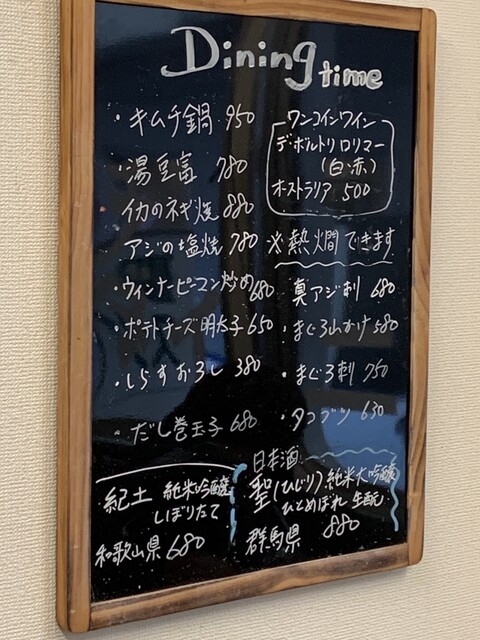 Dining time
・キムチ鍋 950
・湯豆富 780
イカのネギ焼 880
アジの塩焼 780
・ウィンナーピーマン炒め 680
・ポテトチーズ明太子 650
・しらすおろし 380
・だし巻玉子 680
ワンコインワイン
デ・ボルトリ ロリマー
(白・赤)
オーストラリア 500
※熱燗できます
真アジ刺 680
・まぐろ山かけ 580
・まぐろ刺 750
・タコブツ 630
日本酒
紀土 純米吟醸
しぼりたて
和歌山県 680
聖(ひじり)純米大吟醸
ひとめぼれ 生酛
群馬県 880